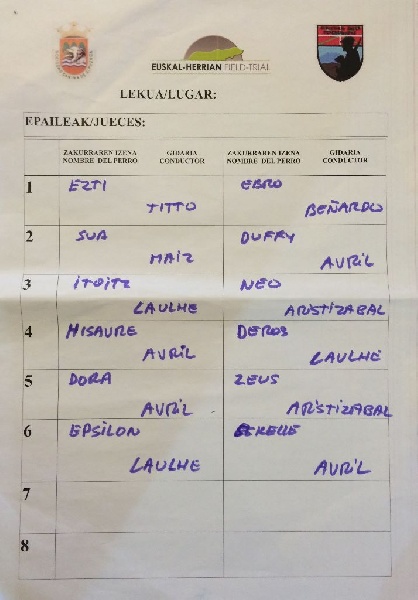 EUSKAL-HERRIAN FIELD-TRIAL
LEKUA/LUGAR:
EPAILEAK/JUECES:
ZAKURRAREN IZENA GIDARIA ZAKURRAREN IZENA GIDARIA
NOMBRE DEL PERRO CONDUCTOR NOMBRE DEL PERRO CONDUCTOR
1 EZTI EBRO
TITTO BEÑARDO
2 SUA DUFFY
MAIZ AVRIL
3 ITOITZ NEO
LAULHE ARISTIZABAL
4 MISAURE DEROS
AVRIL LAULHE
5 DORA ZEUS
AVRIL ARISTIZABAL
6 EPSILON
LAULHE AVRIL
7
8